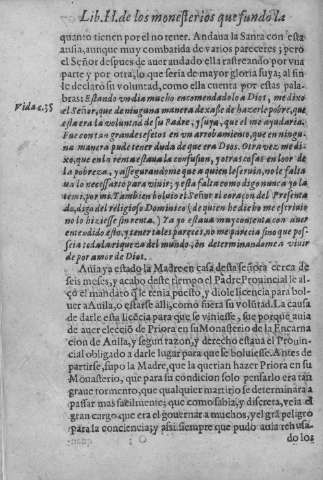 Lib. II. de los monesterios que fundò la
quanto tienen por el no tener. Andaua la Santa con esta
ausia, aunque muy combatida de varios pareceres; pero
el Señor despues de auer andado ella rastreando por vna
parte y por otra, lo que seria de mayor gloria suya; al fin
le declarò su voluntad, como ella cuenta por estas pala-
bras: Estando vn dia mucho encomendandolo a Dios, me dixo
Vida c. 35
el Señor, que de ninguna manera dexasse de hazerle pobre, que
esta era la voluntad de su Padre, y suya, que el me ayudaria.
Fue con tan grandes efetos en vn arrobamiento, que en ningu-
na manera pude tener duda de que era Dios. Otra vez me di-
xo, que en la renta estaua la confusion, y otras cosas en loor de
la pobreza, y assegurandome que a quien le seruia, no le falta
ua lo necessario para viuir; y esta falta como digo nunca yo la
temi por mi. Tambien boluio el Señor el coraçon del Presenta
do, digo del religioso Dominico (de quien he dicho me escriuio
no lo hiziesse sin renta.) Ya yo estaua muy contenta con auer
entendido esto, y tener tales pareceres, no me parecia sino que pos-
seia toda la riqueza del mundo, en determinandome a viuir
de por amor de Dios.
Auia ya estado la Madre en casa desta señora cerca de
seis meses, y acabo deste tiempo el Padre Prouincial le al-
çò el mandato que le tenia puesto, y diole licencia para bol-
uer a Auila, o estarse alli, como fuera su volũtad. La causa
de darle esta licẽcia para que se viniesse, fue porque auia
de auer eleccion de Priora en su Monasterio de la Encarna
cion de Auila, y segun razon, y derecho estaua el Prouin-
cial obligado a darle lugar para que se boluiesse. Antes de
partirse, supo la Madre, que la querian hazer Priora en su
Monasterio, que para su condicion solo pensarlo era tan
graue tormento, que qualquier martirio se determinàra a
passar mas facilmente; que como sabia, y discreta, veia el
gran cargo que era el gouernar a muchos, y el grã peligro
para la conciencia; y assi siempre que pudo auia rehusa-
do los